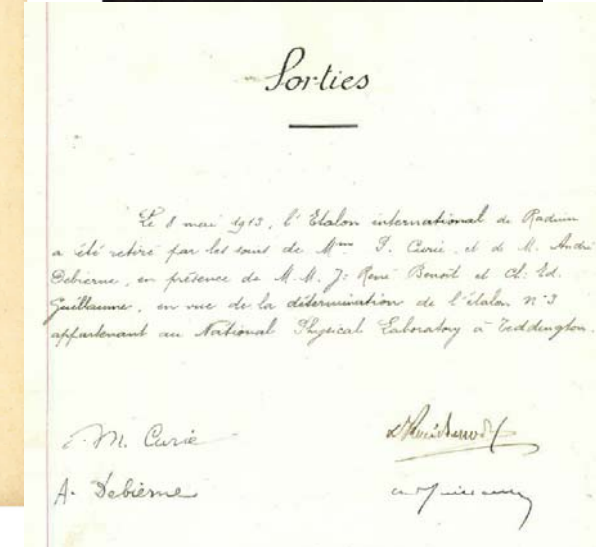 Sorties
Le 8 mai 1913, l'Etalon international de Radium
a été retiré par les soins de Mme P. Curie, et de M. André
Debierne, en présence de M.M. J: René Benoît et Ch: Ed.
Guillaume, en vue de la détermination de l'étalon n°3
appartenant au National Physical Laboratory à Teddington.
M. Curie
A. Debierne